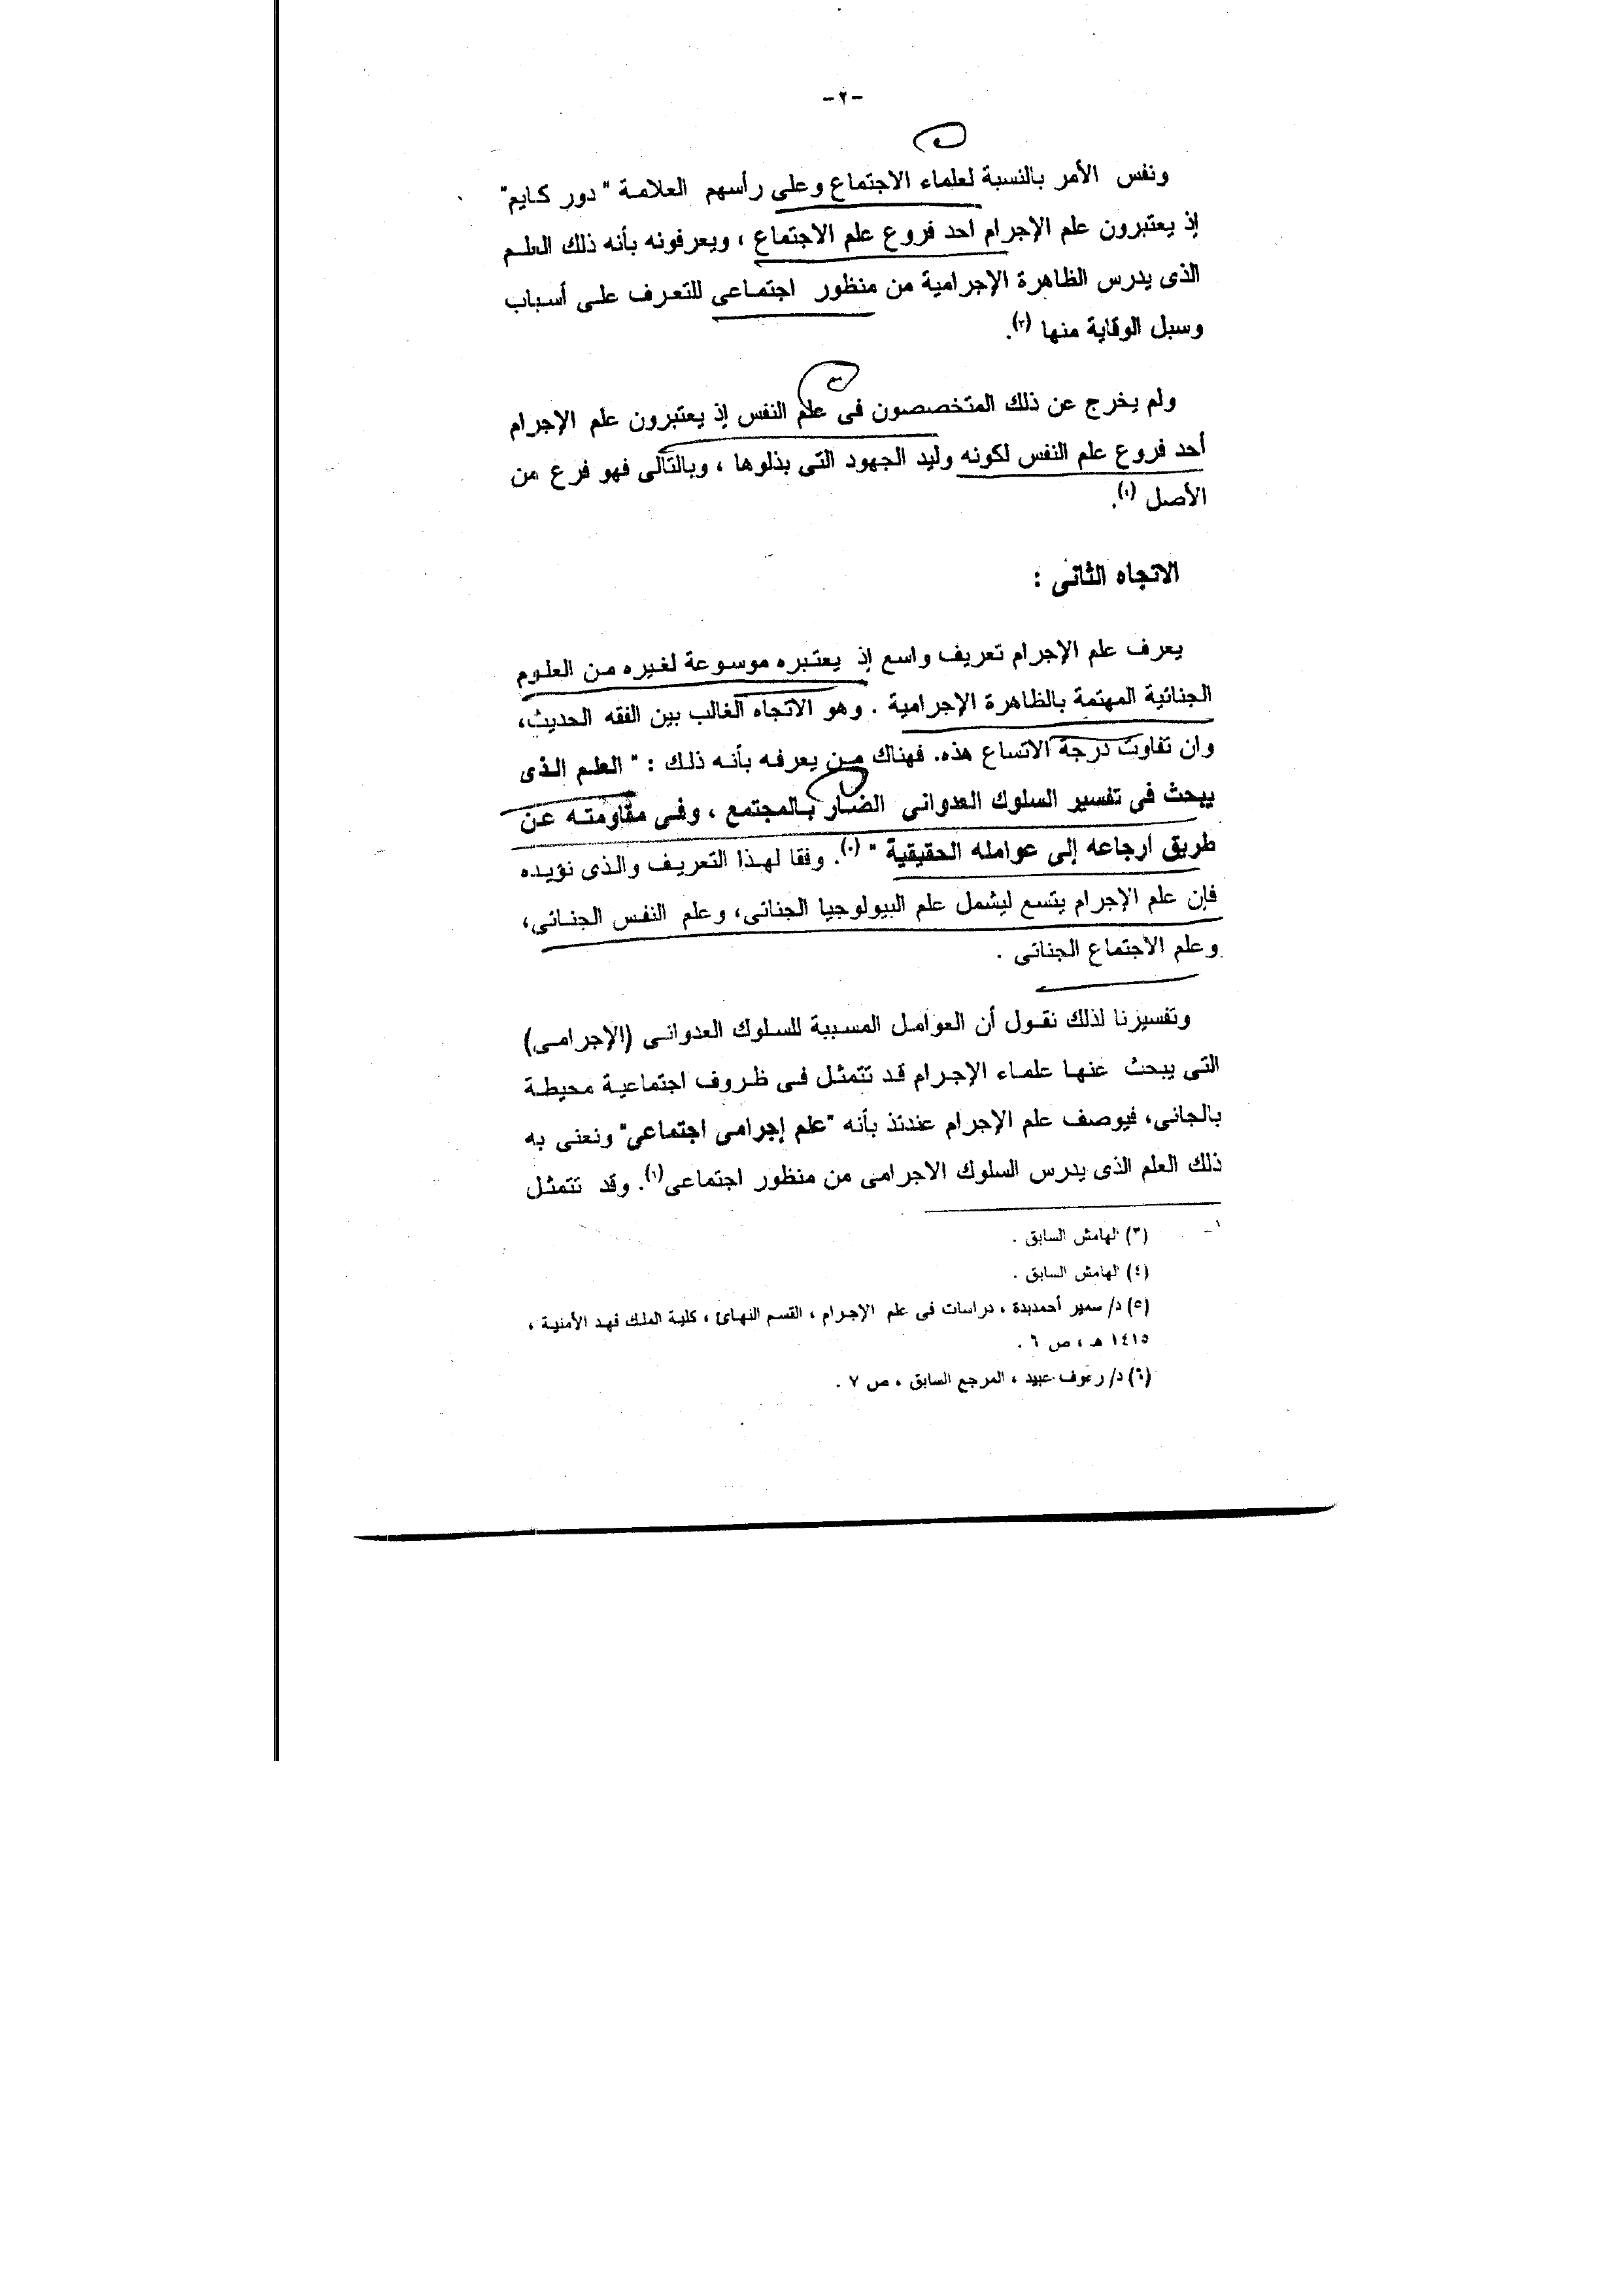 -٢-
ونفس الأمر بالنسبة لعلماء الاجتماع وعلى رأسهم العلامة " دور كايم"
إذ يعتبرون علم الإجرام احد فروع علم الاجتماع ، ويعرفونه بأنه ذلك العلم
الذى يدرس الظاهرة الإجرامية من منظور اجتماعى للتعرف على أسباب
وسبل الوقاية منها (٣).
ولم يخرج عن ذلك المتخصصون فى علم النفس إذ يعتبرون علم الإجرام
أحد فروع علم النفس لكونه وليد الجهود التى بذلوها ، وبالتالى فهو فرع من
الأصل (٤).
الاتجاه الثانى :
يعرف علم الإجرام تعريف واسع إذ يعتبره موسوعة لغيره من العلوم
الجنائية المهتمة بالظاهرة الإجرامية . وهو الاتجاه الغالب بين الفقه الحديث،
وان تفاوت درجة الاتساع هذه. فهناك من يعرفه بأنه ذلك : " العلم الذى
يبحث فى تفسير السلوك العدوانى الضار بالمجتمع ، وفى مقاومته عن
طريق ارجاعه إلى عوامله الحقيقية " (٥). وفقا لهذا التعريف والذى نؤيده
فإن علم الإجرام يتسع ليشمل علم البيولوجيا الجنائى، وعلم النفس الجنائى،
وعلم الاجتماع الجنائى .
وتفسيرنا لذلك نقول أن العوامل المسببة للسلوك العدوانى (الإجرامى)
التى يبحث عنها علماء الإجرام قد تتمثل فى ظروف اجتماعية محيطة
بالجانى، فيوصف علم الإجرام عندئذ بأنه "علم إجرامى اجتماعى" ونعنى به
ذلك العلم الذى يدرس السلوك الاجرامى من منظور اجتماعى(٦). وقد تتمثل
(٣) الهامش السابق .
(٤) الهامش السابق .
(٥) د/ سمير أحمدبدة ، دراسات فى علم الإجرام ، القسم النهائ ، كلية الملك فهد الأمنية ،
١٤١٥ هـ ، ص ٦ .
(٦) د/ رءوف عبيد ، المرجع السابق ، ص ٧ .